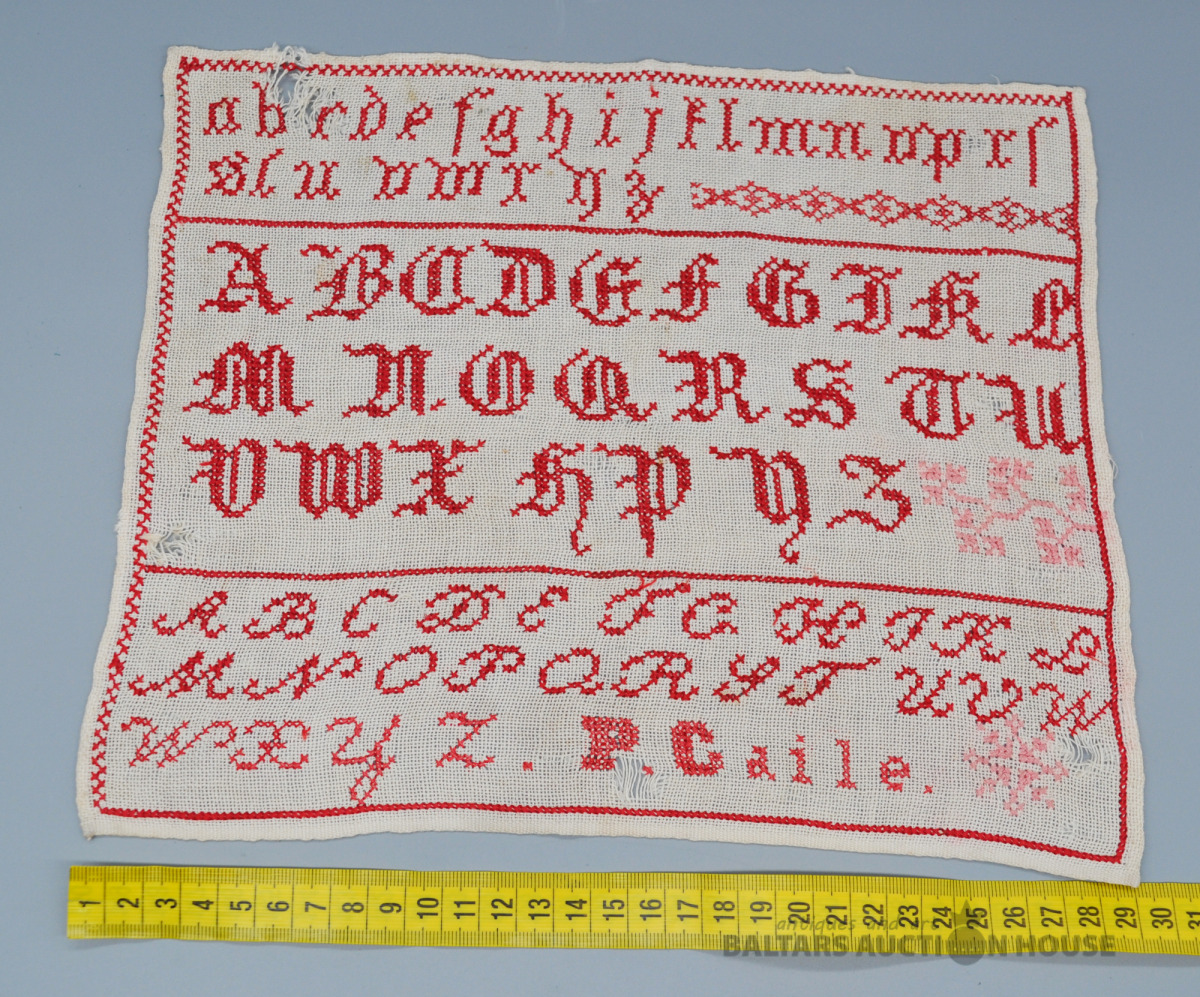 a b c d e f g h i j k l m n o p r ſ
s t u v w x y z
A B C D E F G I K L
M N O Q R S T U
V W X H P Y Z
A B C D E F G H I K L
M N O P Q R S T U V W
W X Y Z . P. Caile.
1 2 3 4 5 6 7 8 9 10 11 12 13 14 15 16 17 18 19 20 21 22 23 24 25 26 27 28 29 30 31
antiques and art
BALTARS AUCTION HOUSE